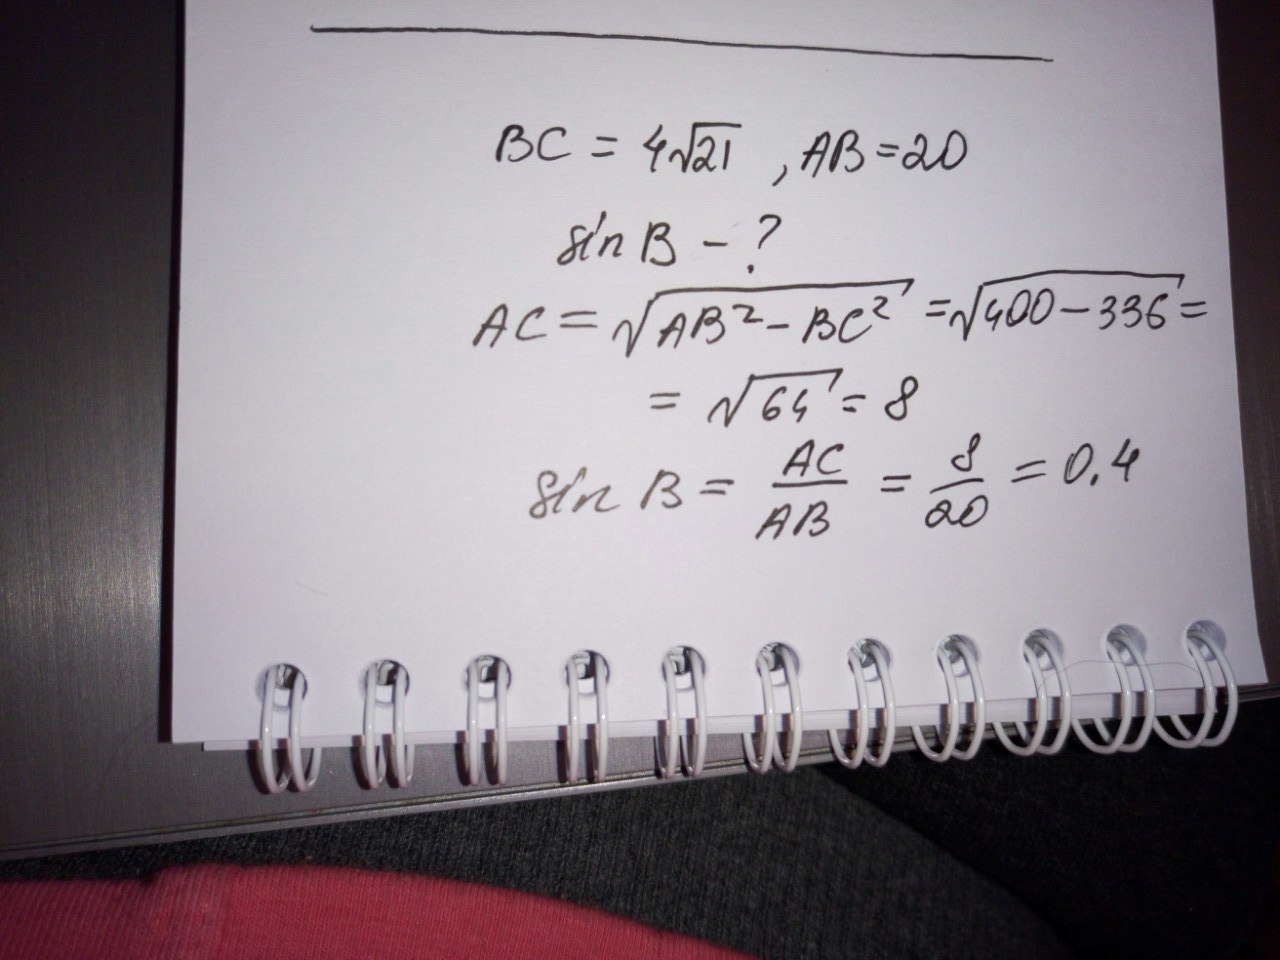 BC = 4√21 , AB = 20
sin B - ?
AC = √AB² - BC² = √400 - 336 =
= √64 = 8
sin B = AC/AB = 8/20 = 0.4